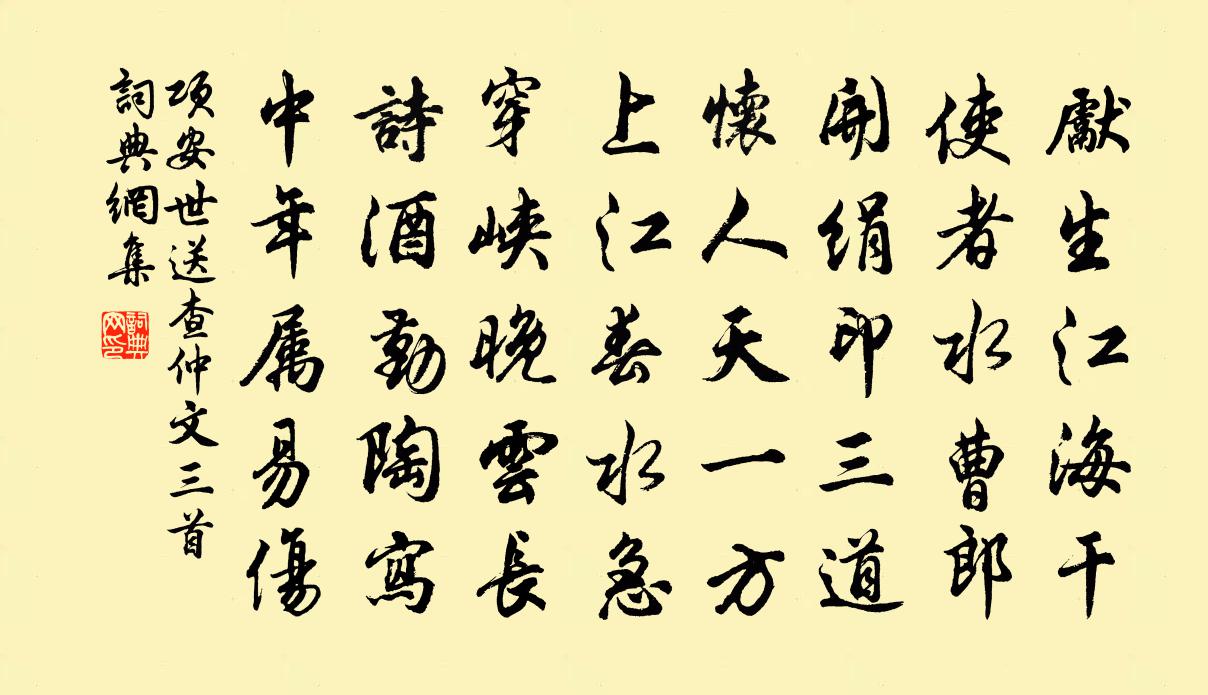 獻生江海干
使者水曹郎
開絹印三道
懷人天一方
上江春水急
穿峽晚雲長
詩酒勤陶寫
中年属易傷
項安世送查仲文三首
詞典網集
詞典网印